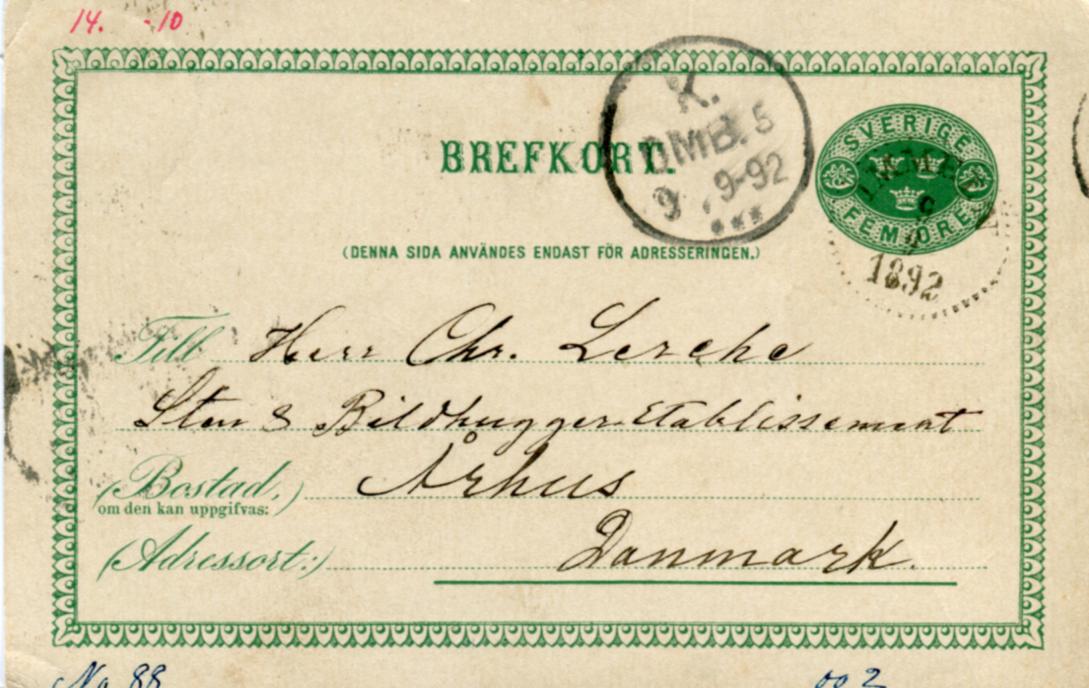 14. -10
BREFKORT.
K.
OMB. 5
9 . 9-92
***
SVERIGE
FEM ÖRE
9
1892
(DENNA SIDA ANVÄNDES ENDAST FÖR ADRESSERINGEN.)
Till Herr Chr. Lerche
Sten & Bildhugger Etablissement
(Bostad,) Århus
om den kan uppgifvas:
(Adressort:) Danmark.
No 88
002